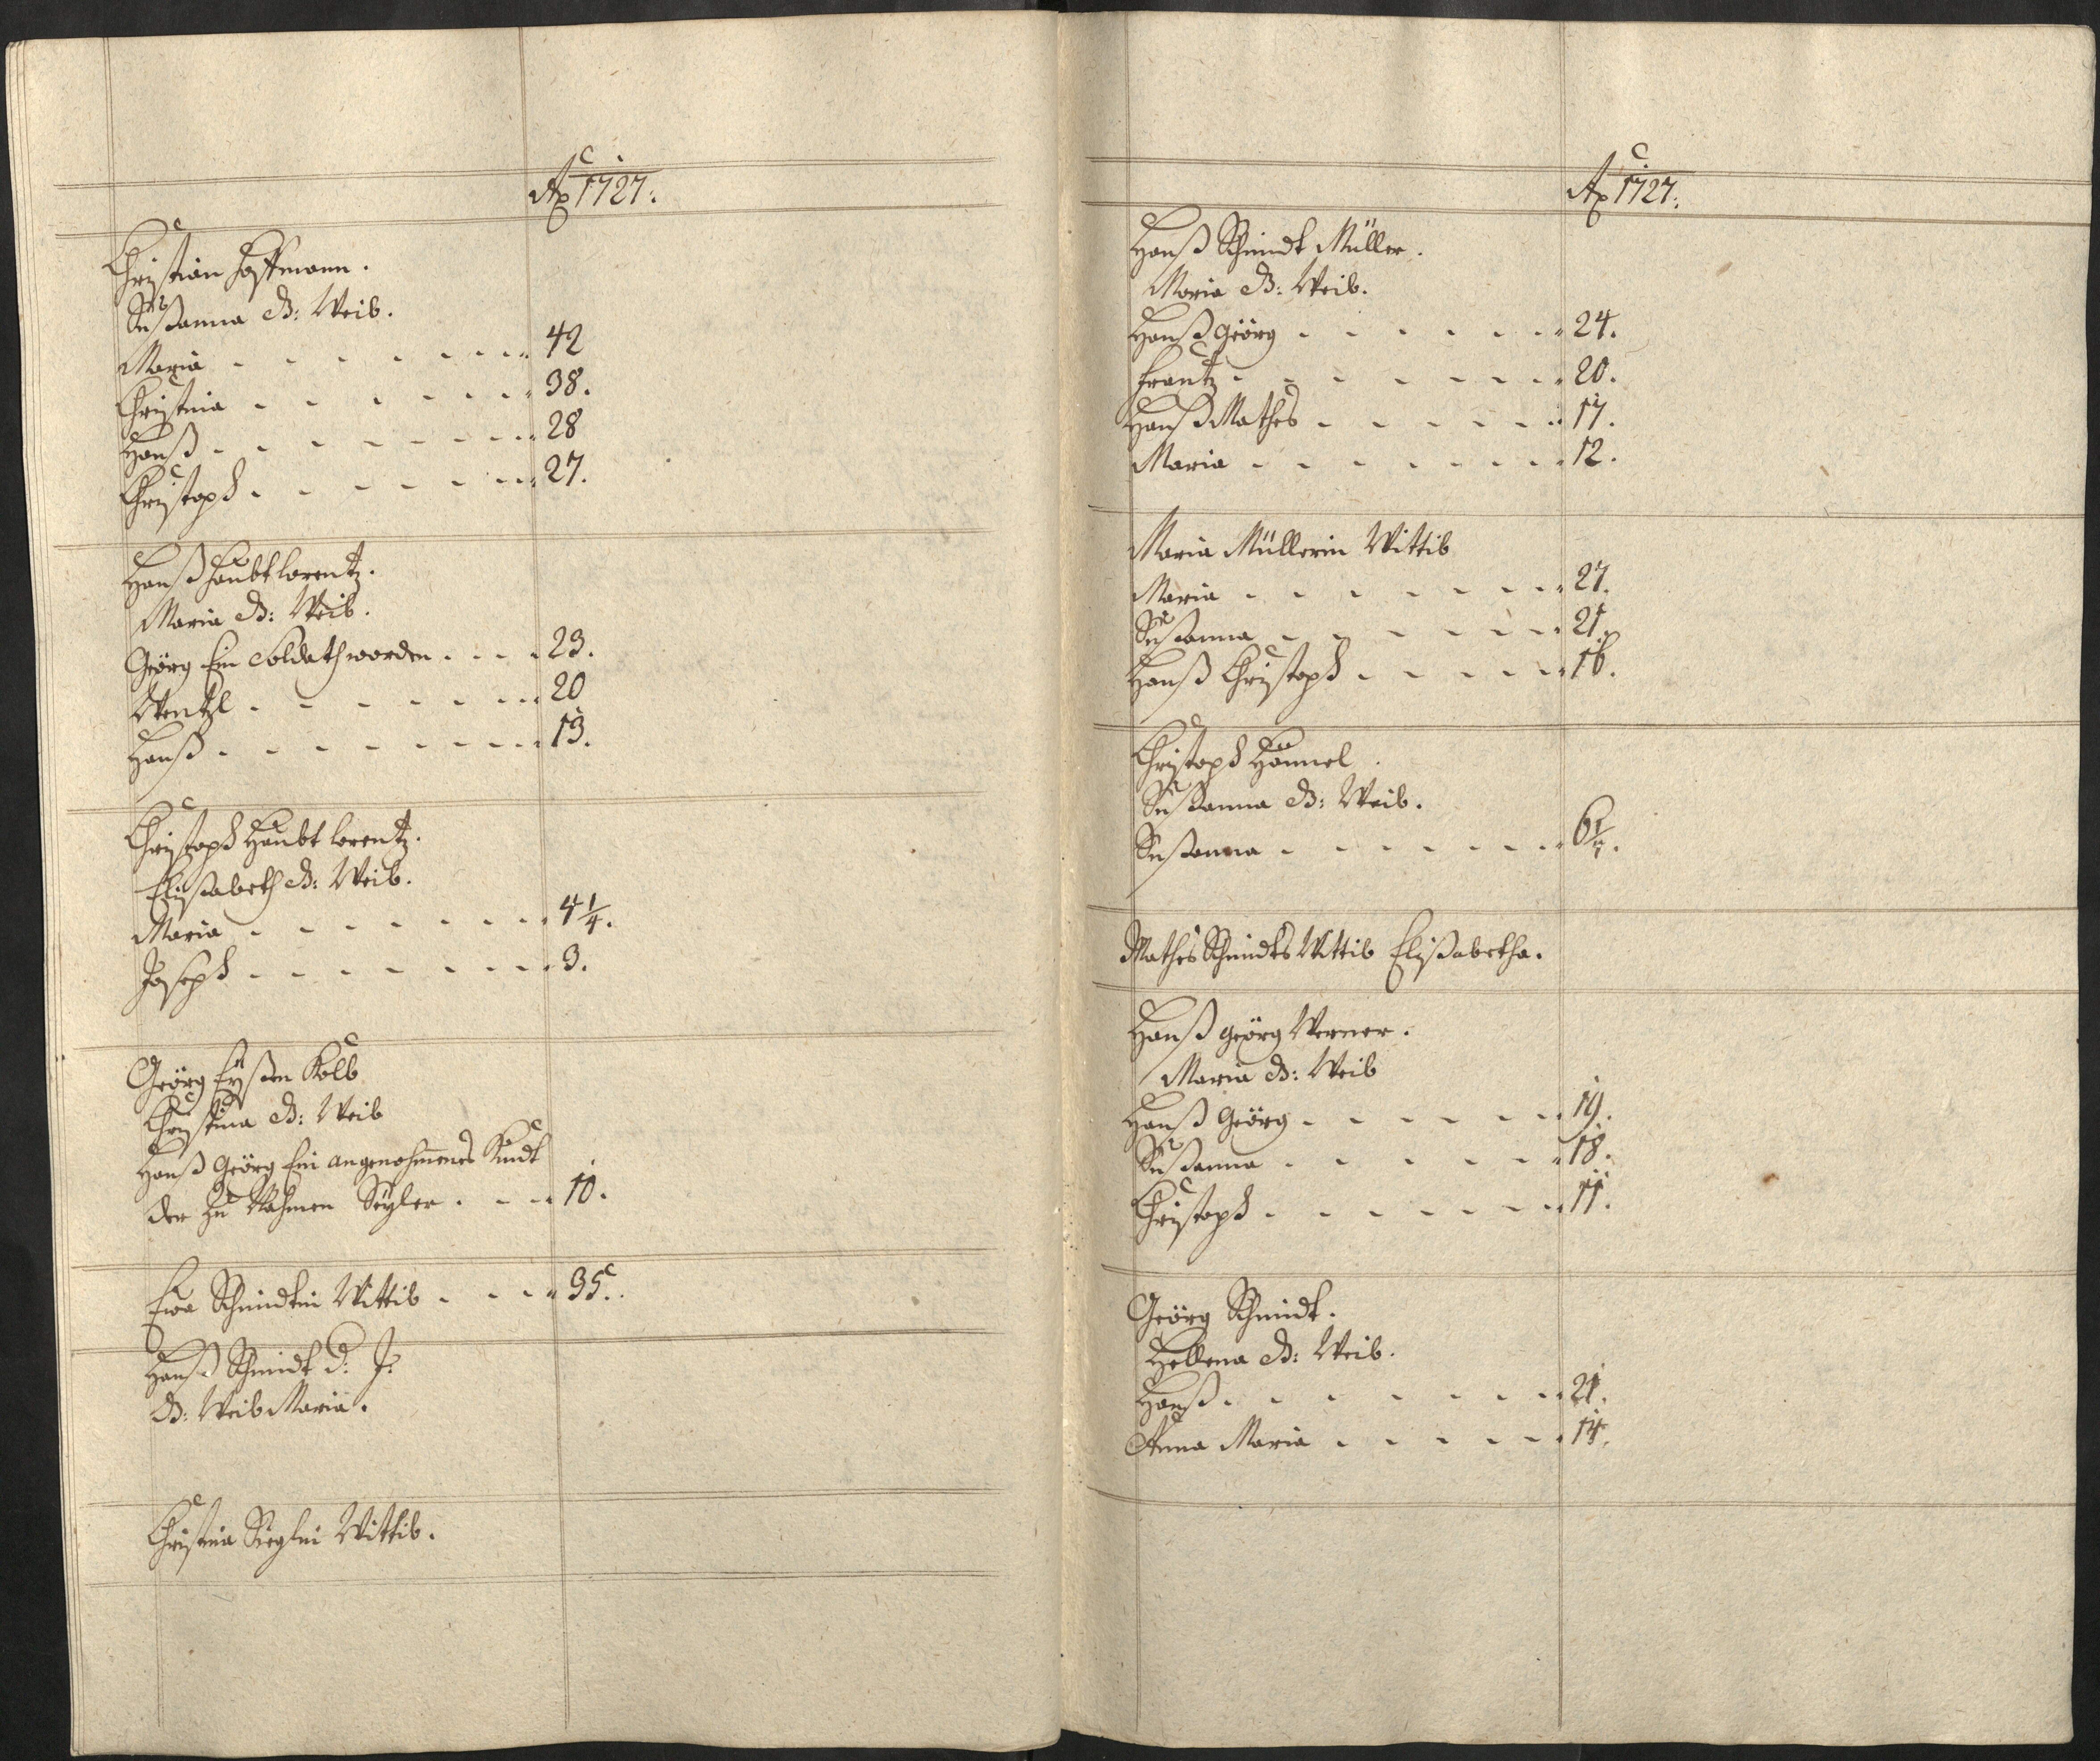 Ao 1727.
Christian Hoffmann.
Sußanna d: Weib.
Maria - - - - - - - 42
Christina - - - - - - - 38.
Hanß - - - - - - - 28
Christoph - - - - - - - 27.
Hanß Haubtlorentz.
Maria d: Weib.
Geörg Ein Soldath worden - - - 23.
Wentzl - - - - - - - 20
Hanß - - - - - - - 13.
Christoph Haubtlorentz.
Elisabeth d: Weib.
Maria - - - - - - - 4 1/4.
Joseph - - - - - - - 3.
Geörg Eyßen Kolb
Christina d: Weib
Hanß Geörg Ein angenohmenes Kindt
der Zu Nahmen Seyler - - - 10.
Ewa Schmidtin Wittib - - - 35.
Hanß Schmidt d: J:
d: Weib Maria.
Christina Sieglin Wittib.
Ao 1727.
Hanß Schmidt Müller.
Maria d: Weib.
Hanß Geörg - - - - - - 24.
Frantz - - - - - - - 20.
Hanß Mathes - - - - - - 17.
Maria - - - - - - - 12.
Maria Müllerin Wittib
Maria - - - - - - - 27.
Sußanna - - - - - - 21.
Hanß Christoph - - - - - 16.
Christoph Hännel.
Sußanna d: Weib.
Sußanna - - - - - - 6
Mathes Schmidts Wittib Elisabetha.
Hanß Geörg Werner.
Maria d: Weib
Hanß Geörg - - - - - - 19.
Sußanna - - - - - - 18.
Christoph - - - - - - - 11.
Geörg Schmidt.
Hellena d: Weib.
Hanß - - - - - - - 21.
Anna Maria - - - - - 14.